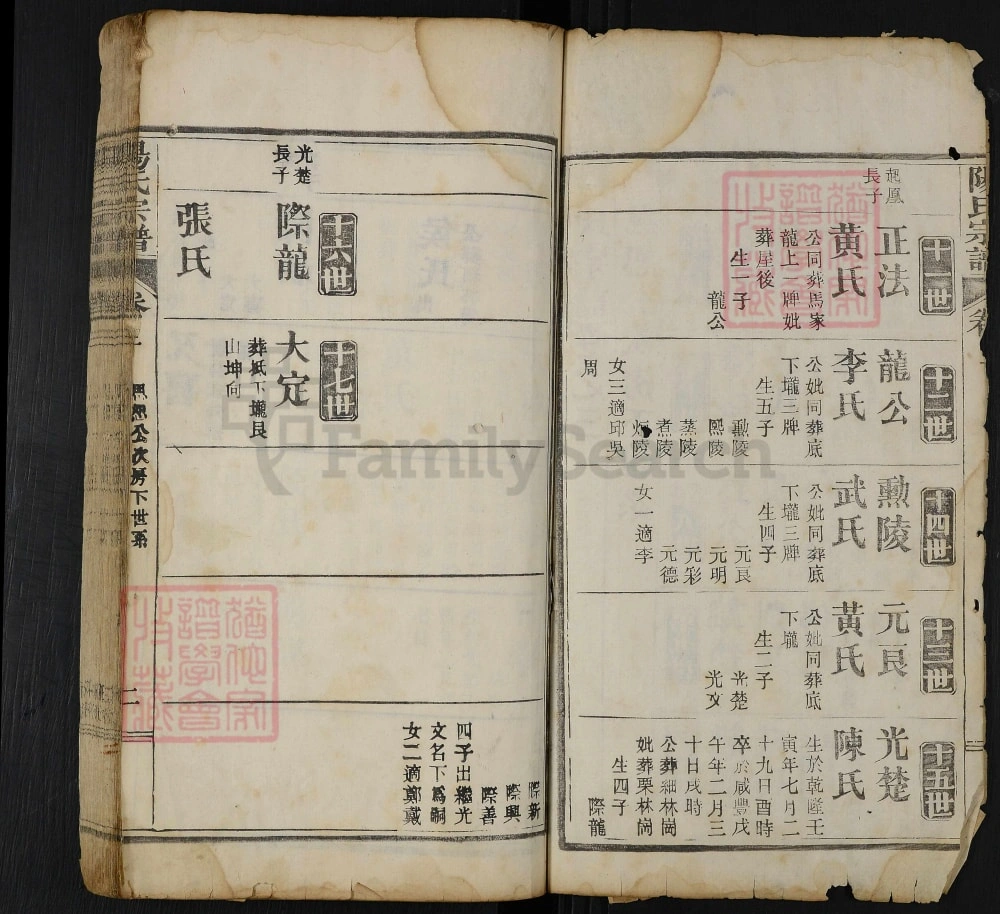 陳氏宗譜
卷
十一世
起鳳
長子
正法
黃氏
公同葬馬家
龍上一牌妣
葬屋後
生一子
龍公
十二世
龍公
李氏
公妣同葬底
下壠三牌
生五子
勳陵
熙陵
蒸陵
煮陵
炳陵
女三適邱吳
周
十四世
勳陵
武氏
公妣同葬底
下壠三牌
生四子
元良
元明
元彩
元德
女一適李
十三世
元良
黃氏
公妣同葬底
下壠
生二子
光楚
光文
十五世
光楚
陳氏
生於乾隆王
寅年七月二
十九日酉時
卒於咸豐戊
午年二月三
十日戌時
公葬細林崗
妣葬栗林崗
生四子
際龍
際新
際興
際善
四子出繼光
文名下爲嗣
女二適鄭戴
十六世
光楚
長子
際龍
張氏
十七世
大定
葬坻下壠艮
山坤向
易氏宗譜
卷
公次房下世系
二
FamilySearch